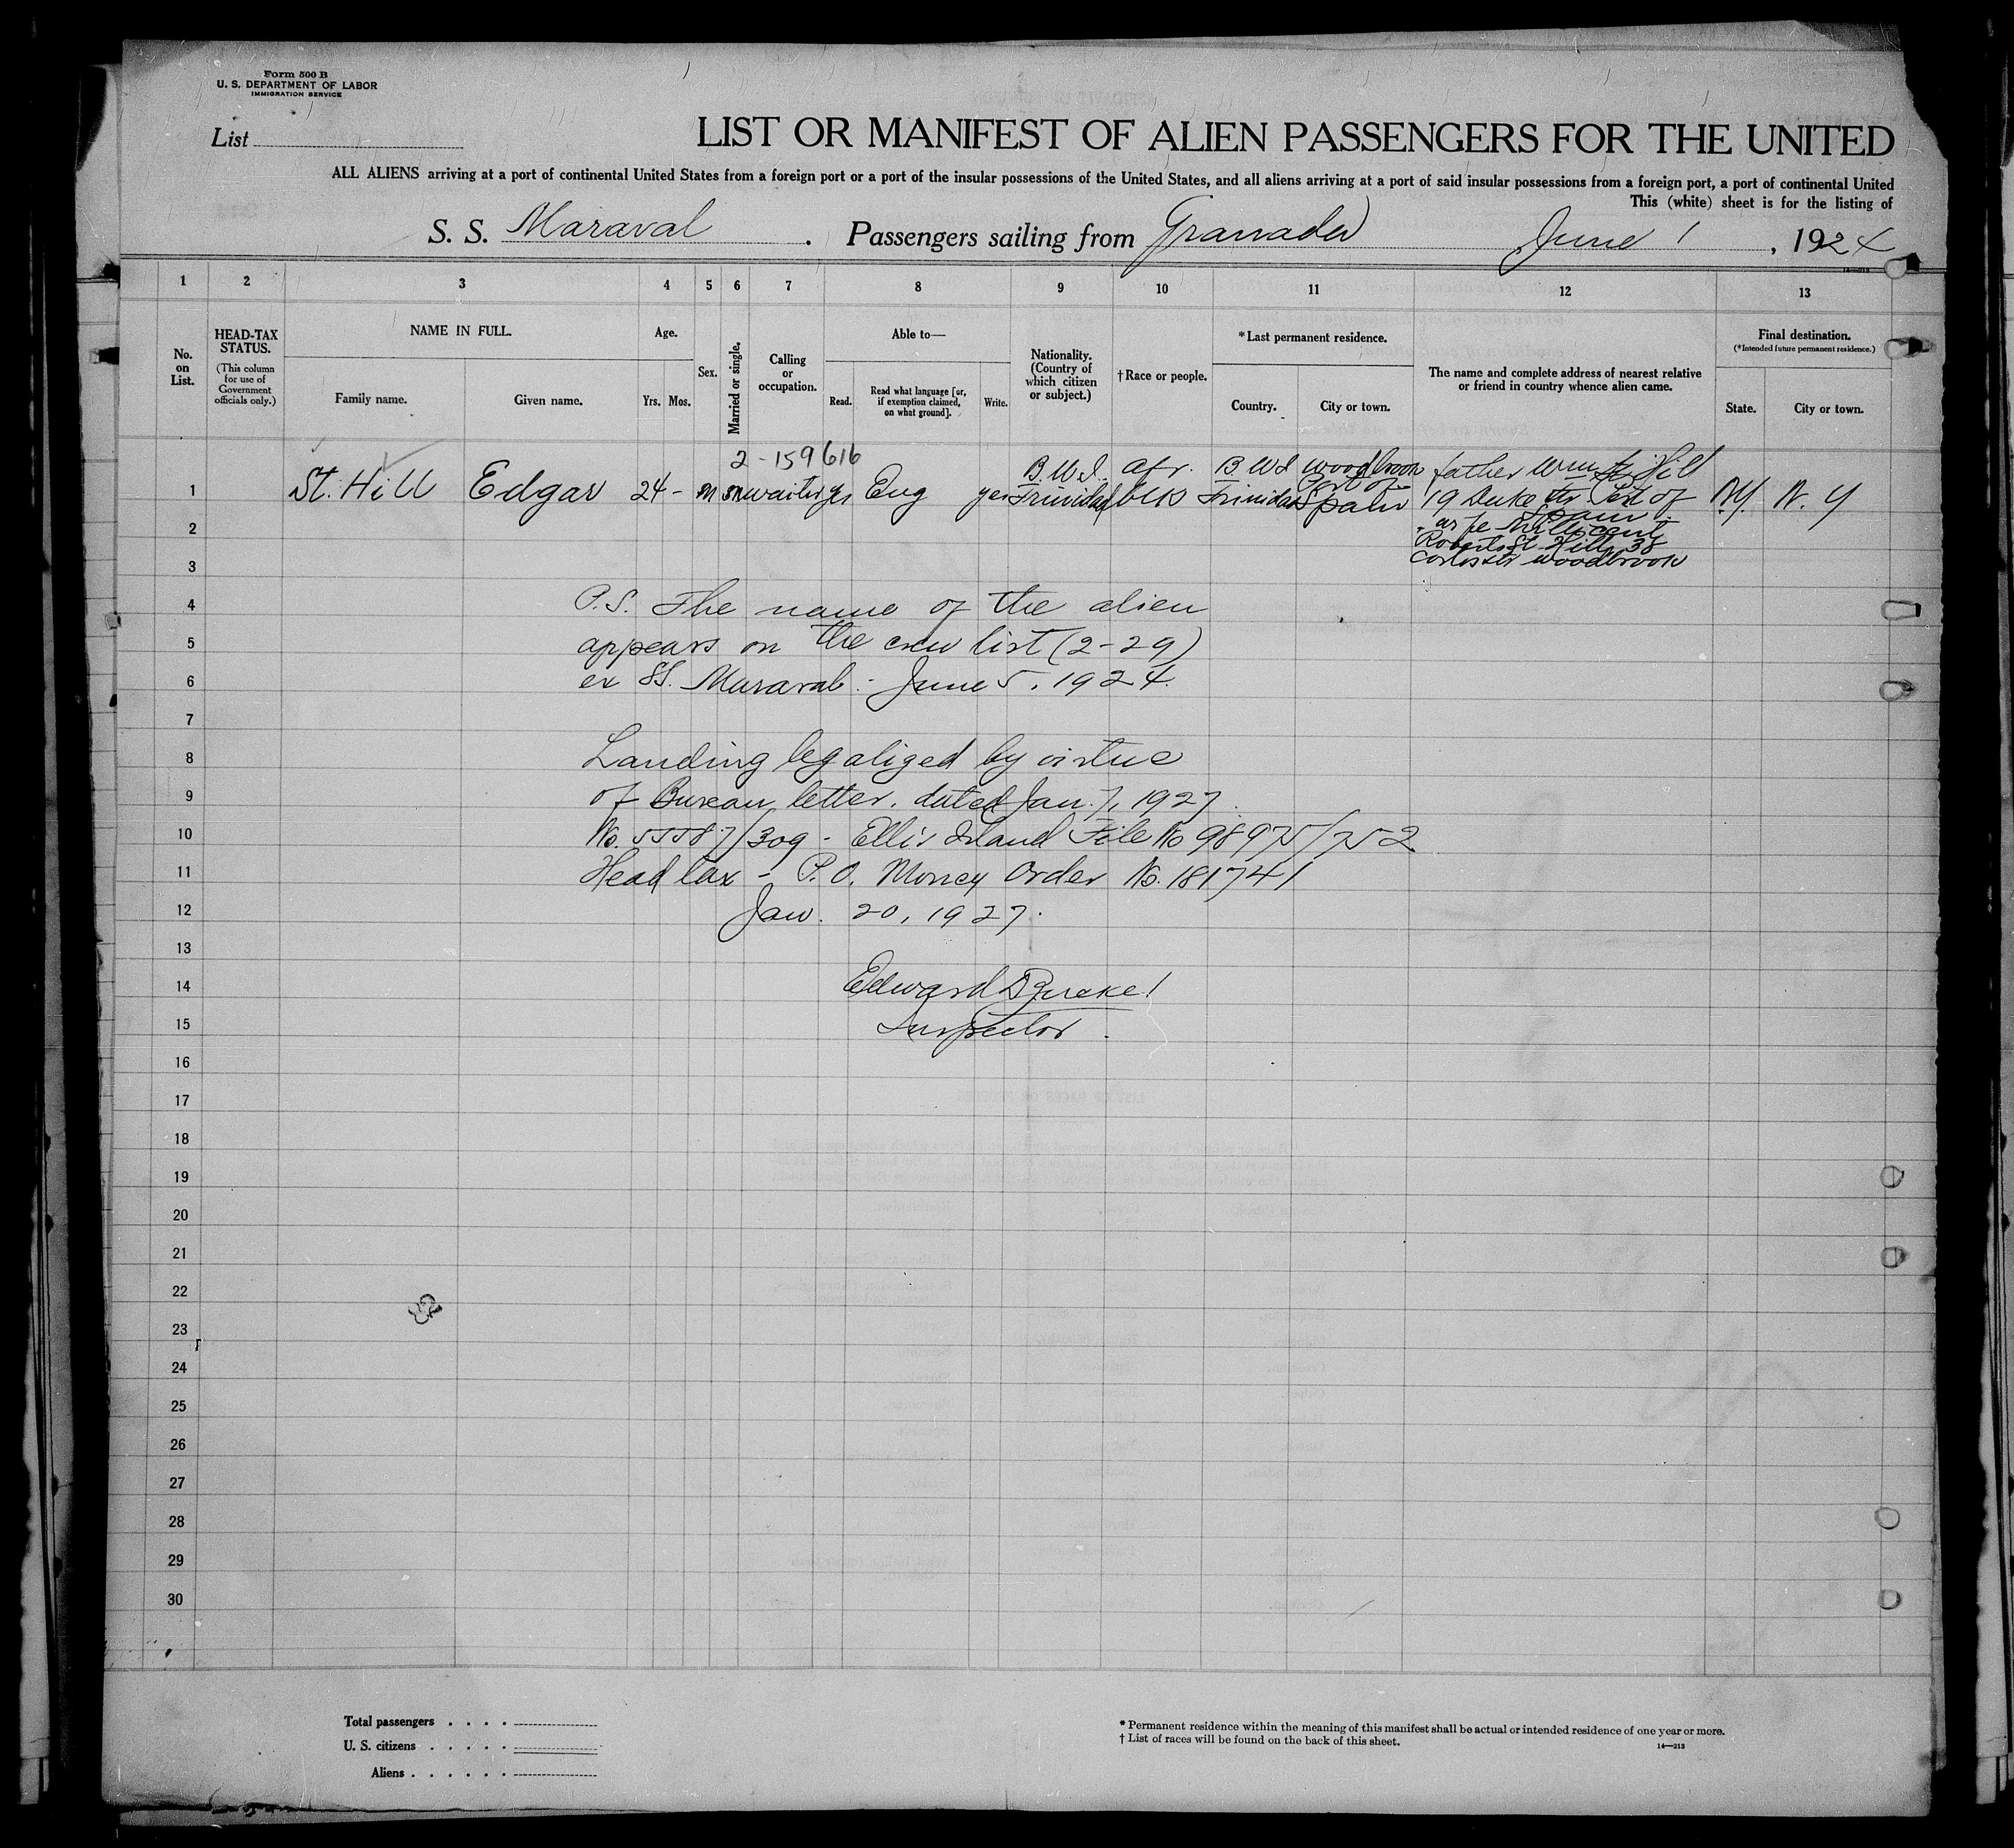 Form 500 B
U. S. DEPARTMENT OF LABOR
IMMIGRATION SERVICE
List
LIST OR MANIFEST OF ALIEN PASSENGERS FOR THE UNITED
ALL ALIENS arriving at a port of continental United States from a foreign port or a port of the insular possessions of the United States, and all aliens arriving at a port of said insular possessions from a foreign port, a port of continental United
This (white) sheet is for the listing of
S. S. Maraval . Passengers sailing from Granada June 1 , 1924
1 2 3 4 5 6 7 8 9 10 11 12 13
No. on List.
HEAD-TAX STATUS.
(This column for use of Government officials only.)
NAME IN FULL.
Family name. Given name.
Age.
Yrs. Mos.
Sex.
Married or single.
Calling or occupation.
Able to—
Read. Read what language [or, if exemption claimed, on what ground]. Write.
Nationality. (Country of which citizen or subject.)
† Race or people.
*Last permanent residence.
Country. City or town.
The name and complete address of nearest relative or friend in country whence alien came.
Final destination.
(*Intended future permanent residence.)
State. City or town.
2 - 159616
1 St. Hill Edgar 24 - m m waiter yes Eng yes B.W.I. Trinidad afr. blk B W I Trinidad Woodbrook Port of Spain father Wm St Hill
19 Duke str Port of Spain N.Y. N. Y
2
Roberts St. Hill, 38
3 woodbrook
4 P.S. The name of the alien
5 appears on the crew list (2-29)
6 ex SS. Maraval - June 5, 1924.
7
8 Landing legalized by virtue
9 of Bureau letter, dated Jan. 7, 1927.
10 No. 55587/309 - Ellis Island File No 98975/752
11 Head tax - P. O. Money Order No. 181741
12 Jan. 20, 1927.
13
14 Edward
15 Inspector.
16
17
18
19
20
21
22
23
24
25
26
27
28
29
30
Total passengers . . . .
U. S. citizens . . . . .
Aliens . . . . . .
* Permanent residence within the meaning of this manifest shall be actual or intended residence of one year or more.
† List of races will be found on the back of this sheet.
14—213